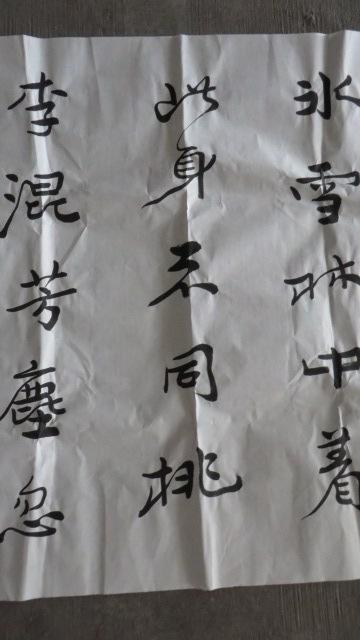 冰雪林中着
此身不同桃
李混芳塵忽